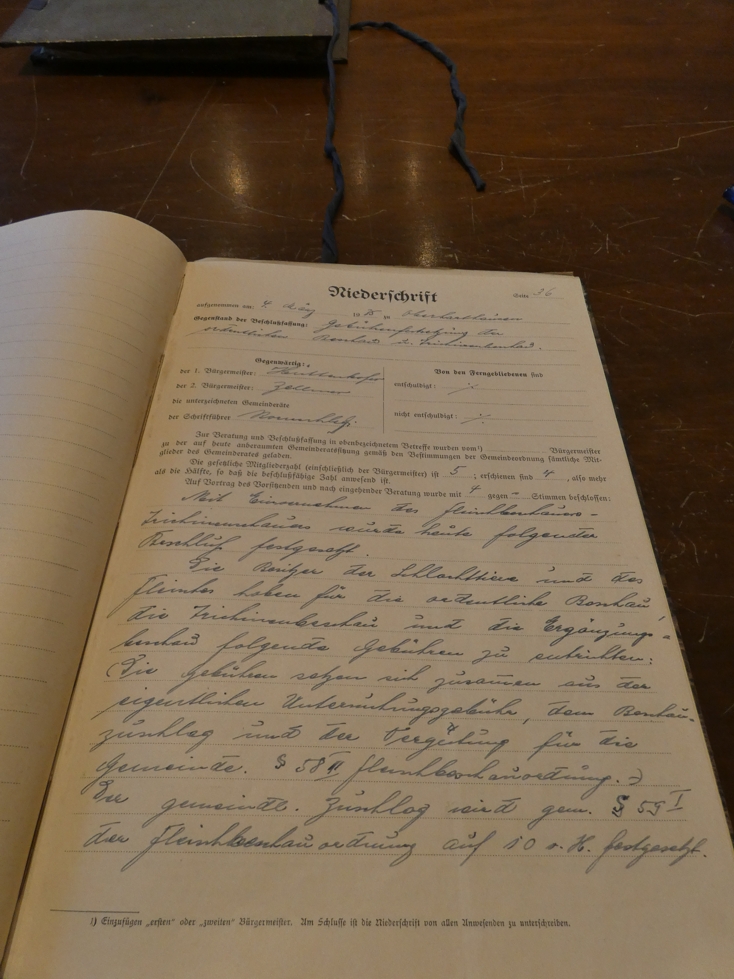 Niederschrift
Seite 36
aufgenommen am: 4. 19 zu
Gegenstand der Beschlußfassung: Gebührenfestsetzung der
ordentlichen Beschau u. Trichinenbeschau.
Gegenwärtig:
Von den Ferngebliebenen sind
der 1. Bürgermeister:
entschuldigt: ./.
der 2. Bürgermeister:
die unterzeichneten Gemeinderäte
nicht entschuldigt: ./.
der Schriftführer
Zur Beratung und Beschlußfassung in obenbezeichnetem Betreffe wurden vom¹) Bürgermeister
zu der auf heute anberaumten Gemeinderatssitzung gemäß den Bestimmungen der Gemeindeordnung sämtliche Mit-
glieder des Gemeinderates geladen.
Die gesetzliche Mitgliederzahl (einschließlich der Bürgermeister) ist 5 ; erschienen sind 4, also mehr
als die Hälfte, so daß die beschlußfähige Zahl anwesend ist.
Auf Vortrag des Vorsitzenden und nach eingehender Beratung wurde mit 4 gegen - Stimmen beschlossen:
Mit Einvernehmen des Fleischbeschauers-
Trichinenschauers wurde heute folgender
Beschluß festgesetzt.
Die Besitzer der Schlachttiere und des
Fleisches haben für die ordentliche Beschau,
die Trichinenbeschau und die Ergänzungs-
beschau folgende Gebühren zu entrichten:
(Die Gebühren setzen sich zusammen aus der
eigentlichen Untersuchungsgebühr, dem Beschau-
zuschlag und der Vergütung für die
Gemeinde. § 58 II Fleischbeschauordnung.)
Der gemeindl. Zuschlag wird gem. § 59 I
der Fleischbeschauordnung auf 10 v. H. festgesetzt.
¹) Einzufügen „ersten" oder „zweiten" Bürgermeister. Am Schlusse ist die Niederschrift von allen Anwesenden zu unterschreiben.